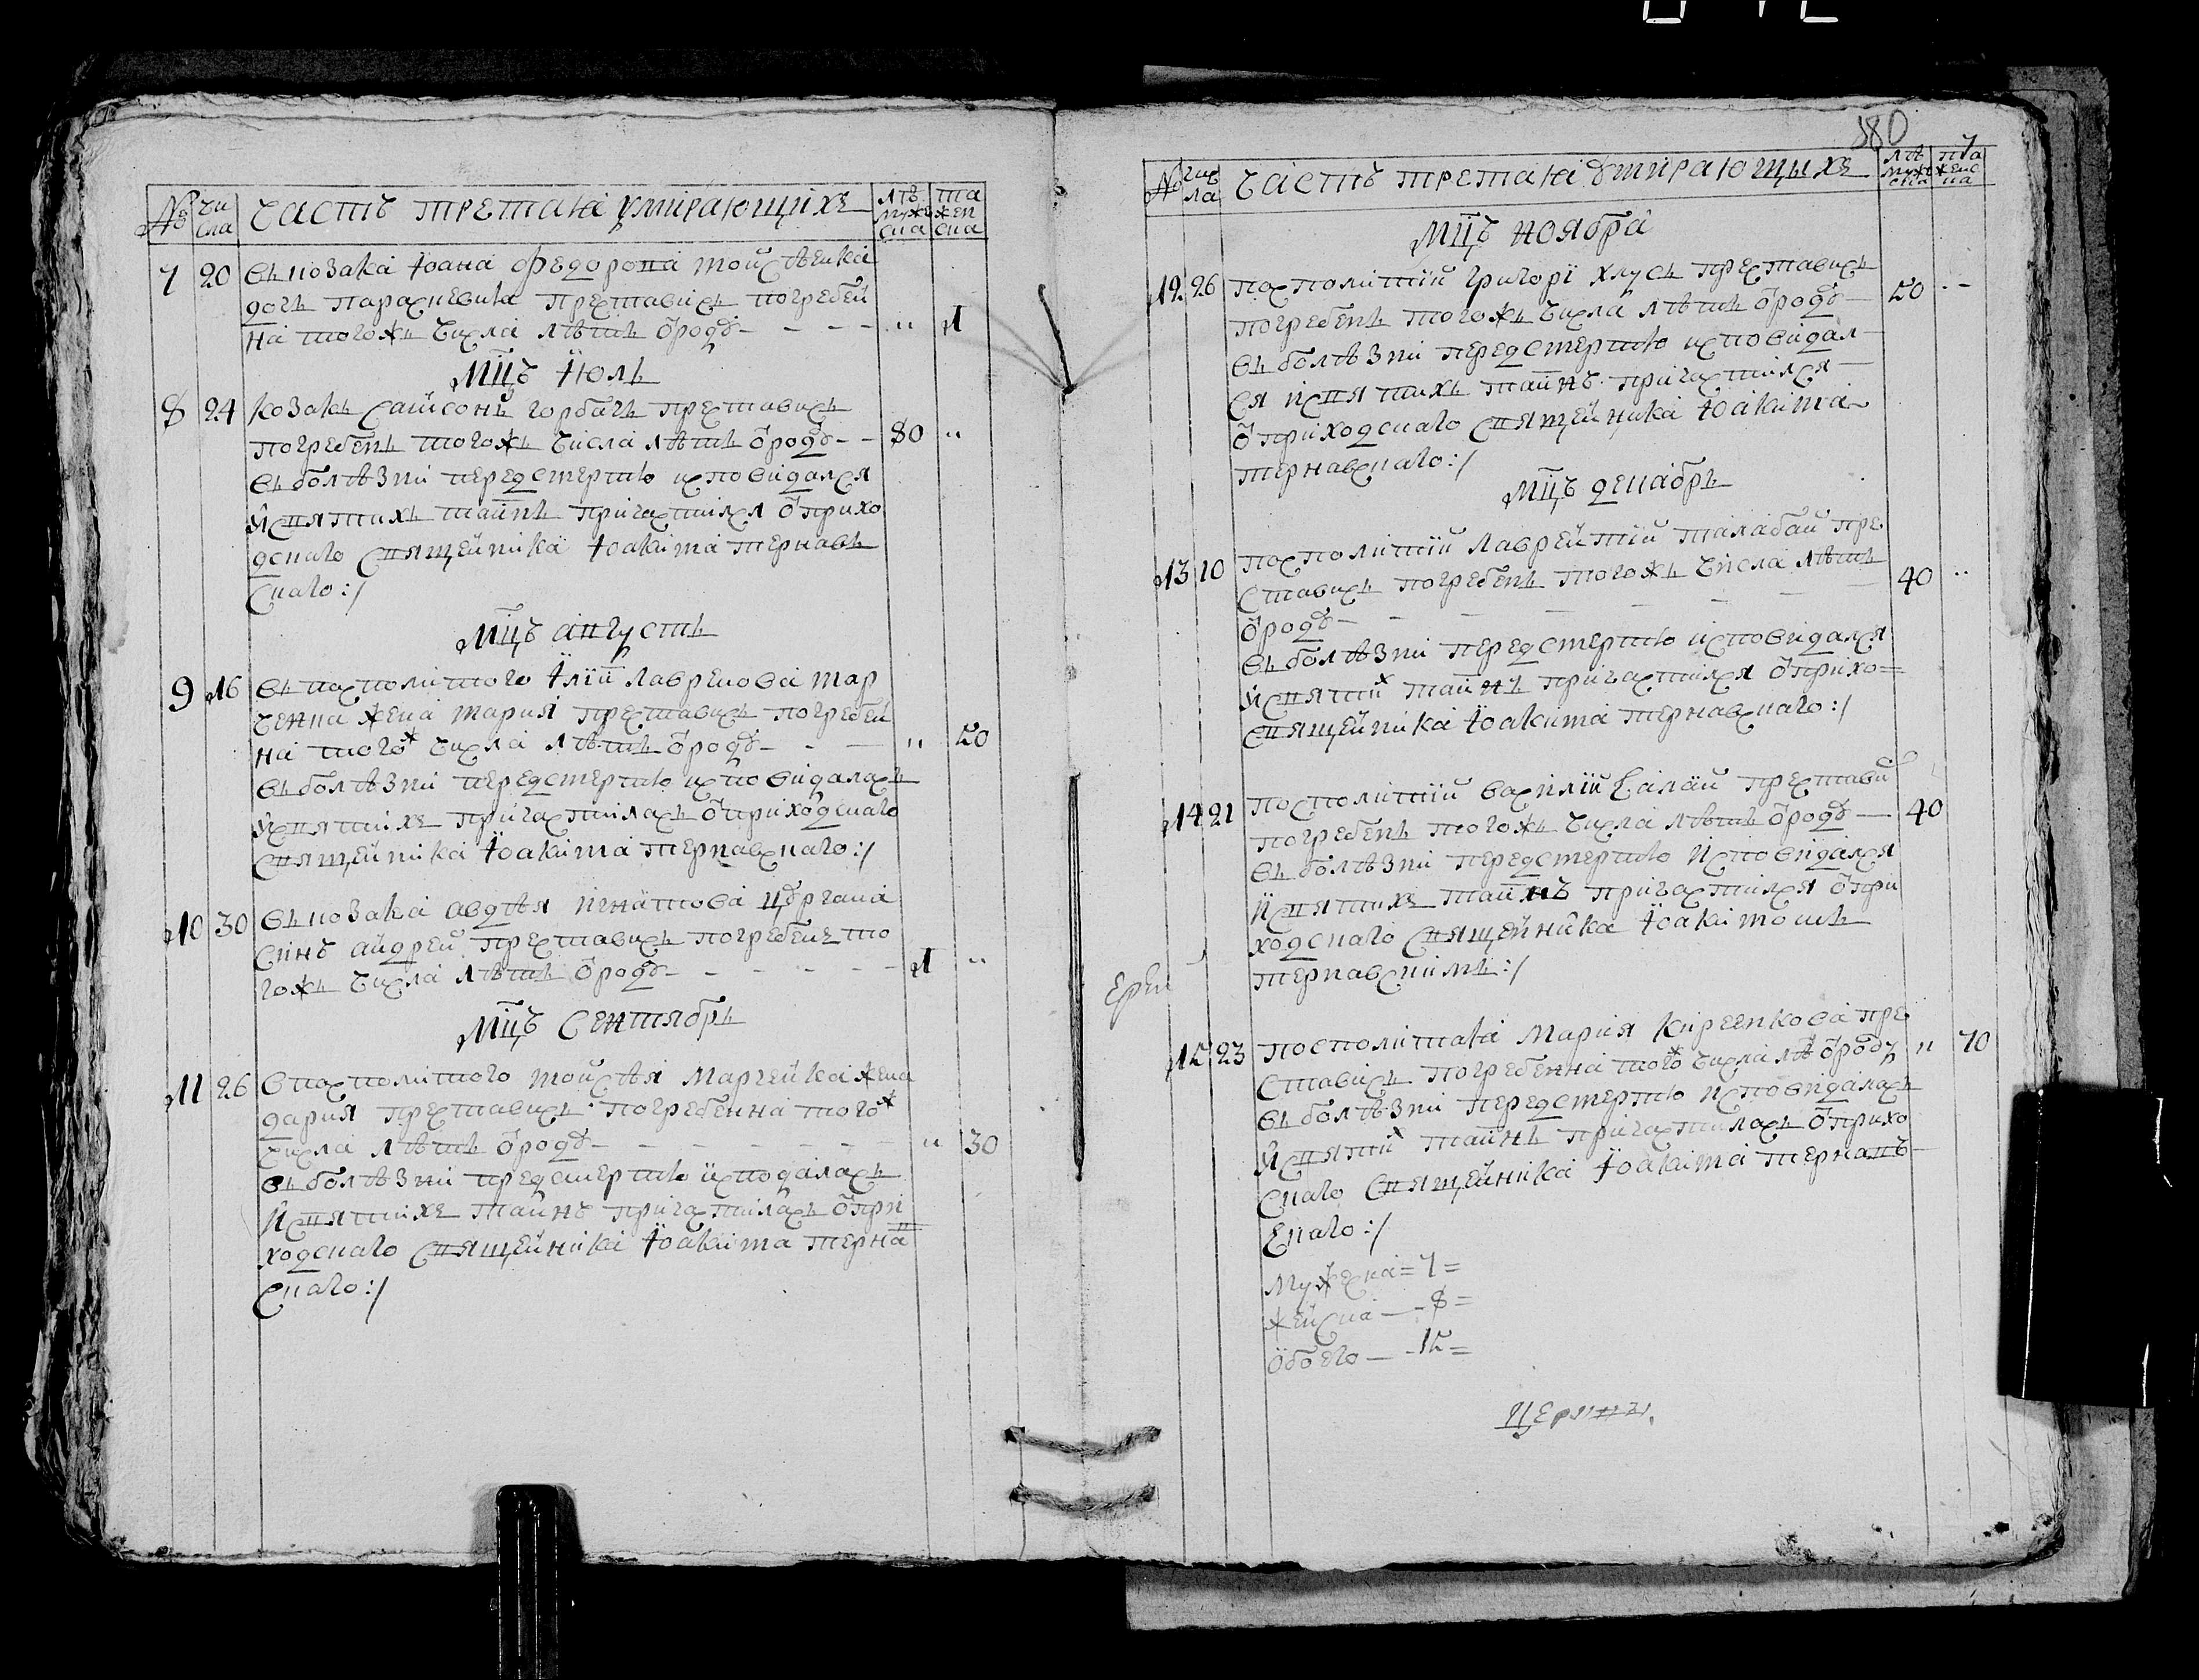 № числа Часть третая умирающихъ лѣта мужеска женска
7 20 въ козака Іоана Федорова Мойсѣенка
дочь Параскевия преставись погребен
на тогожъ числа лѣтъ ѿроду - - - - " 1
Мцъ Июль
8 24 Козакъ Самсонъ Горбачъ преставись
погребенъ тогожъ числа лѣтъ ѿроду - - 80 "
въ болѣзни передсмертю исповидался
и святихъ таинъ причастился ѿ прихо
дского священника Іоакима Тернавъ
ского :/
Мцъ августъ
9 16 въ посполитого Илии Лавренова Мар
ченка жена Мария преставись погребен
на того ж числа лѣтъ ѿроду - - - " 50
въ болѣзни передсмертю исповидалась
и святихъ причастилась ѿ приходского
священника Іоакима Тернавского :/
10 30 въ козака Авдѣя Игнатова Цургана
синъ Андрей преставись погребенъ то
гожъ числа лѣтъ ѿроду - - - - - - 1 "
Мцъ Сентябрь
11 26 в посполитого Мойсѣя Марченка жена
Дария преставись погребенна того ж
числа лѣтъ ѿроду - - - - - - - " 30
въ болѣзни предсмертю исподалась
и святихъ таинъ причастилась ѿ при
ходского священника Іоакима Терна в
ского :/
180
№ числа Часть третая умирающихъ лѣта мужеска женска
Мцъ ноября
12 26 посполитий Григори Хлусь преставись
погребенъ тогожъ числа лѣтъ ѿроду 50 - -
въ болѣзни передсмертю исповидал
ся и святихъ таинъ причастился
ѿ приходского священника Іоакима
Тернавского :/
Мцъ декабрь
13 10 посполитий Лаврентий Талабан пре
ставись погребенъ тогожъ числа лѣтъ 40 "
ѿроду - - - - - - -
въ болѣзни передсмертю исповидался
и святих таинъ причастился ѿ прихо =
священника Іоакима Тернавского :/
14 21 посполитий Василий преставис
погребенъ тогожъ числа лѣтъ ѿроду - 40
въ болѣзни передсмертю исповидался
и святихъ таинъ причастился ѿ при
ходского священника Іоакимомъ
Тернавскимъ :/
15 23 посполитая Мария Киреенкова пре
ставись погребенна того ж числа лѣт ѿроду " 70
въ болѣзни передсмертю исповидалась
и святих таинъ причастилась ѿ прихо
ского священника Іоакима Тернавъ
ского :/
Мужеска = 7 =
женска - - 8 =
обоего - - 15 =